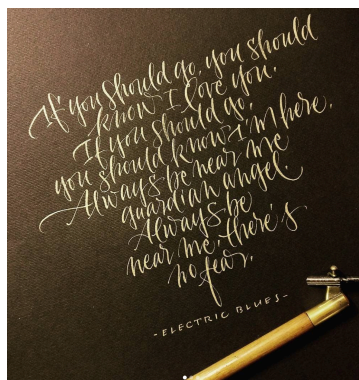 If you should go, you should
know I love you.
If you should go,
you should know I'm here.
Always be near me
guardian angel.
Always be
near me, there's
no fear.
-ELECTRIC BLUES-